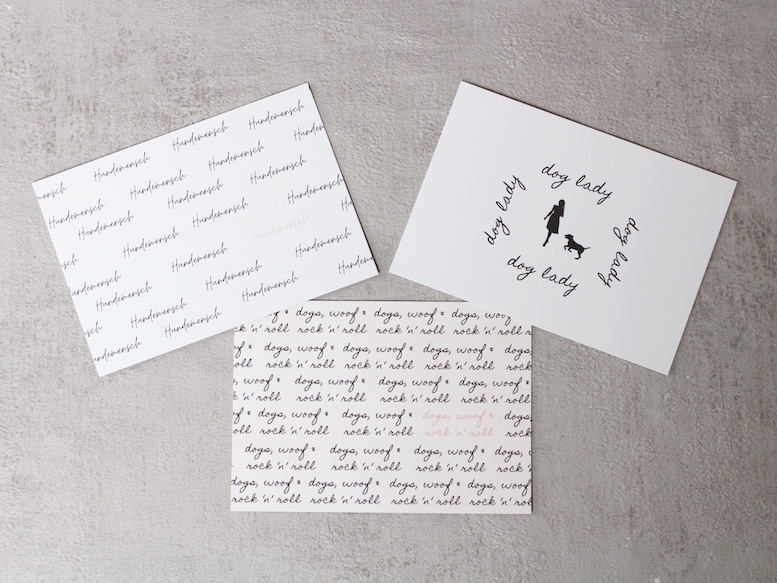 Hundemensch Hundemensch Hundemensch
Hundemensch Hundemensch Hundemensch
Hundemensch Hundemensch Hundemensch
Hundemensch Hundemensch Hundemensch
Hundemensch Hundemensch Hundemensch
Hundemensch Hundemensch Hundemensch
dog lady
dog lady
dog lady
dog lady
dogs, woof & dogs, woof & dogs, woof
rock 'n' roll rock 'n' roll rock 'n' roll
dogs, woof & dogs, woof & dogs, woof & dogs,
rock 'n' roll rock 'n' roll rock 'n' roll rock
woof & dogs, woof & dogs, woof & dogs, woof &
rock 'n' roll rock 'n' roll rock 'n' roll
dogs, woof & dogs, woof & dogs, woof & dogs,
rock 'n' roll rock 'n' roll rock 'n' roll rock
dogs, woof & dogs, woof & dogs, woof & dogs,
rock 'n' roll rock 'n' roll rock 'n' roll rock
woof & dogs, woof & dogs, woof & dogs, woof &
rock 'n' roll rock 'n' roll rock 'n' roll rock 'n' roll